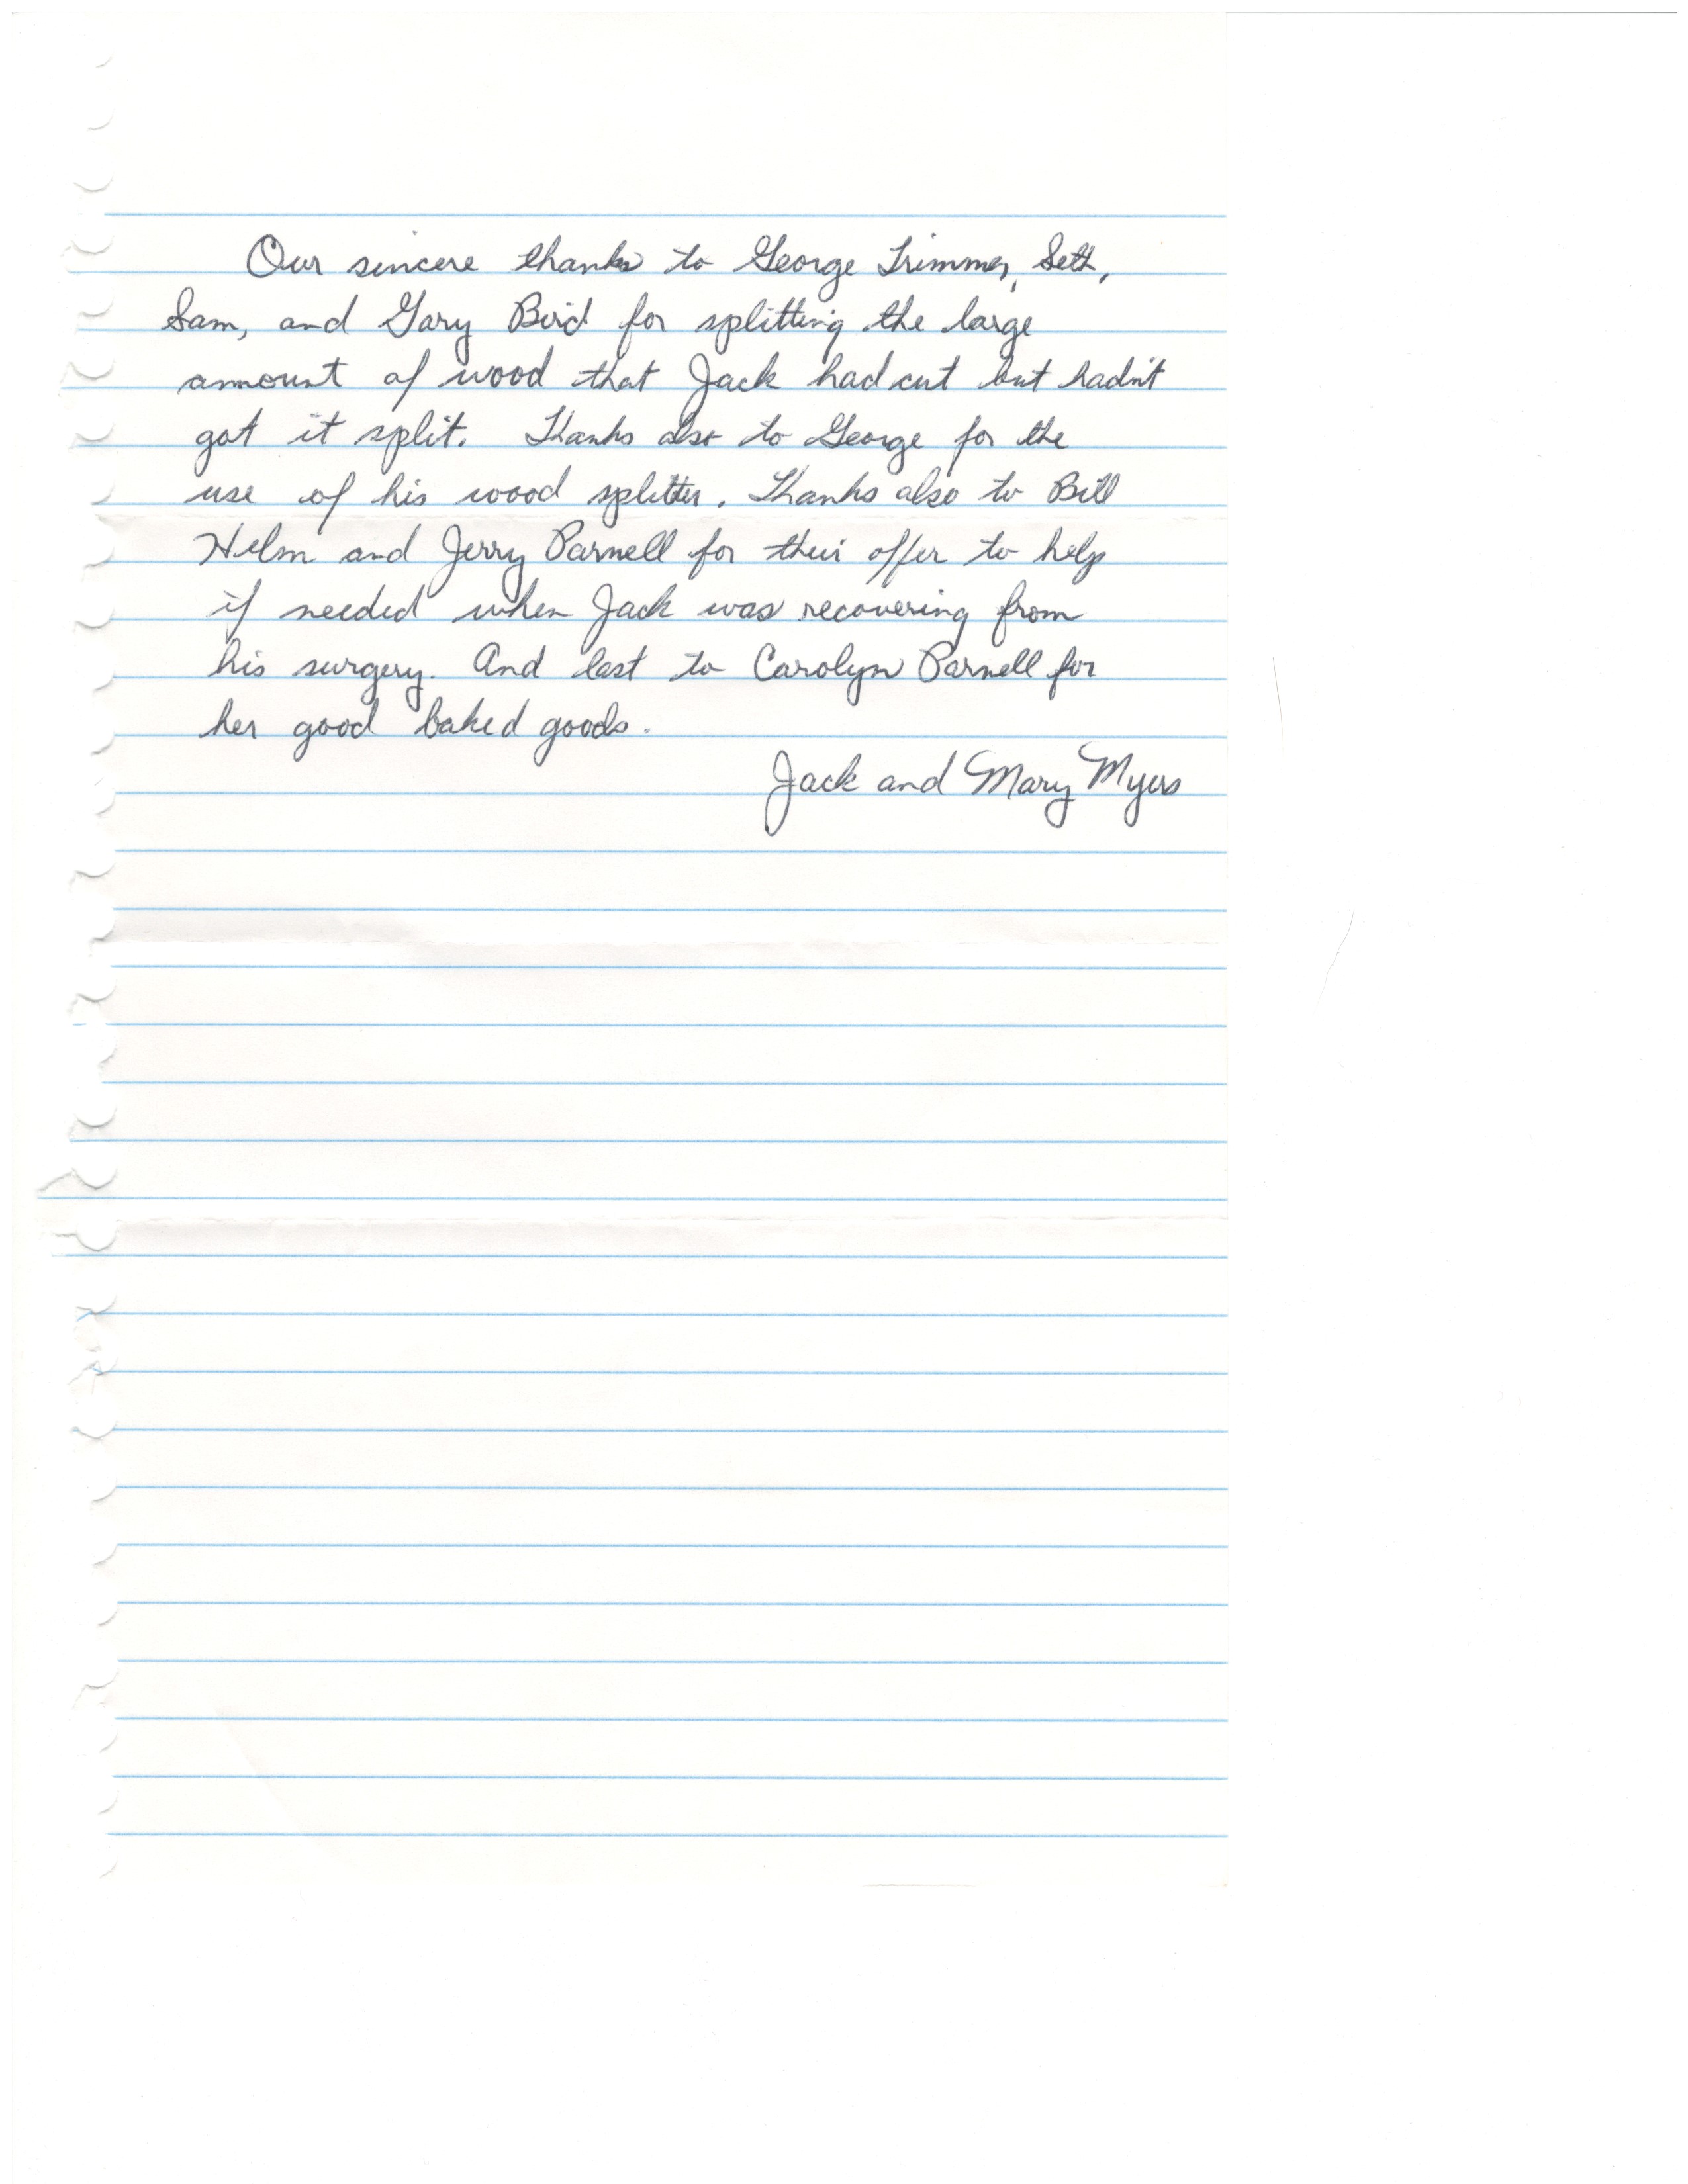 Our sincere thanks to George Trimmer, Seth,
Sam, and Gary Bird for splitting the large
amount of wood that Jack had cut but hadn't
got it split. Thanks also to George for the
use of his wood splitter. Thanks also to Bill
Helm and Jerry Parnell for their offer to help
if needed when Jack was recovering from
his surgery. And last to Carolyn Parnell for
her good baked goods.
Jack and Mary Myers